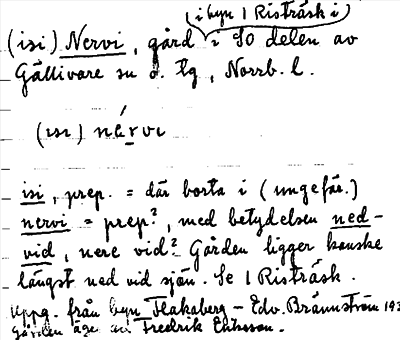 (i byn 1 Risträsk i)
(isi) Nervi, gård i SO delen av
Gällivare sn o. tg, Norrb. l.
(isi) nérvi
isi, prep. = där borta i (ungefär.)
nervi = prep?, med betydelsen ned-
vid, nere vid? Gården ligger kanske
längst ned vid sjön. Se 1 Risträsk.
Uppg. från byn Flakaberg - Edv. Brännström 193
Gården äges av Fredrik Eriksson.